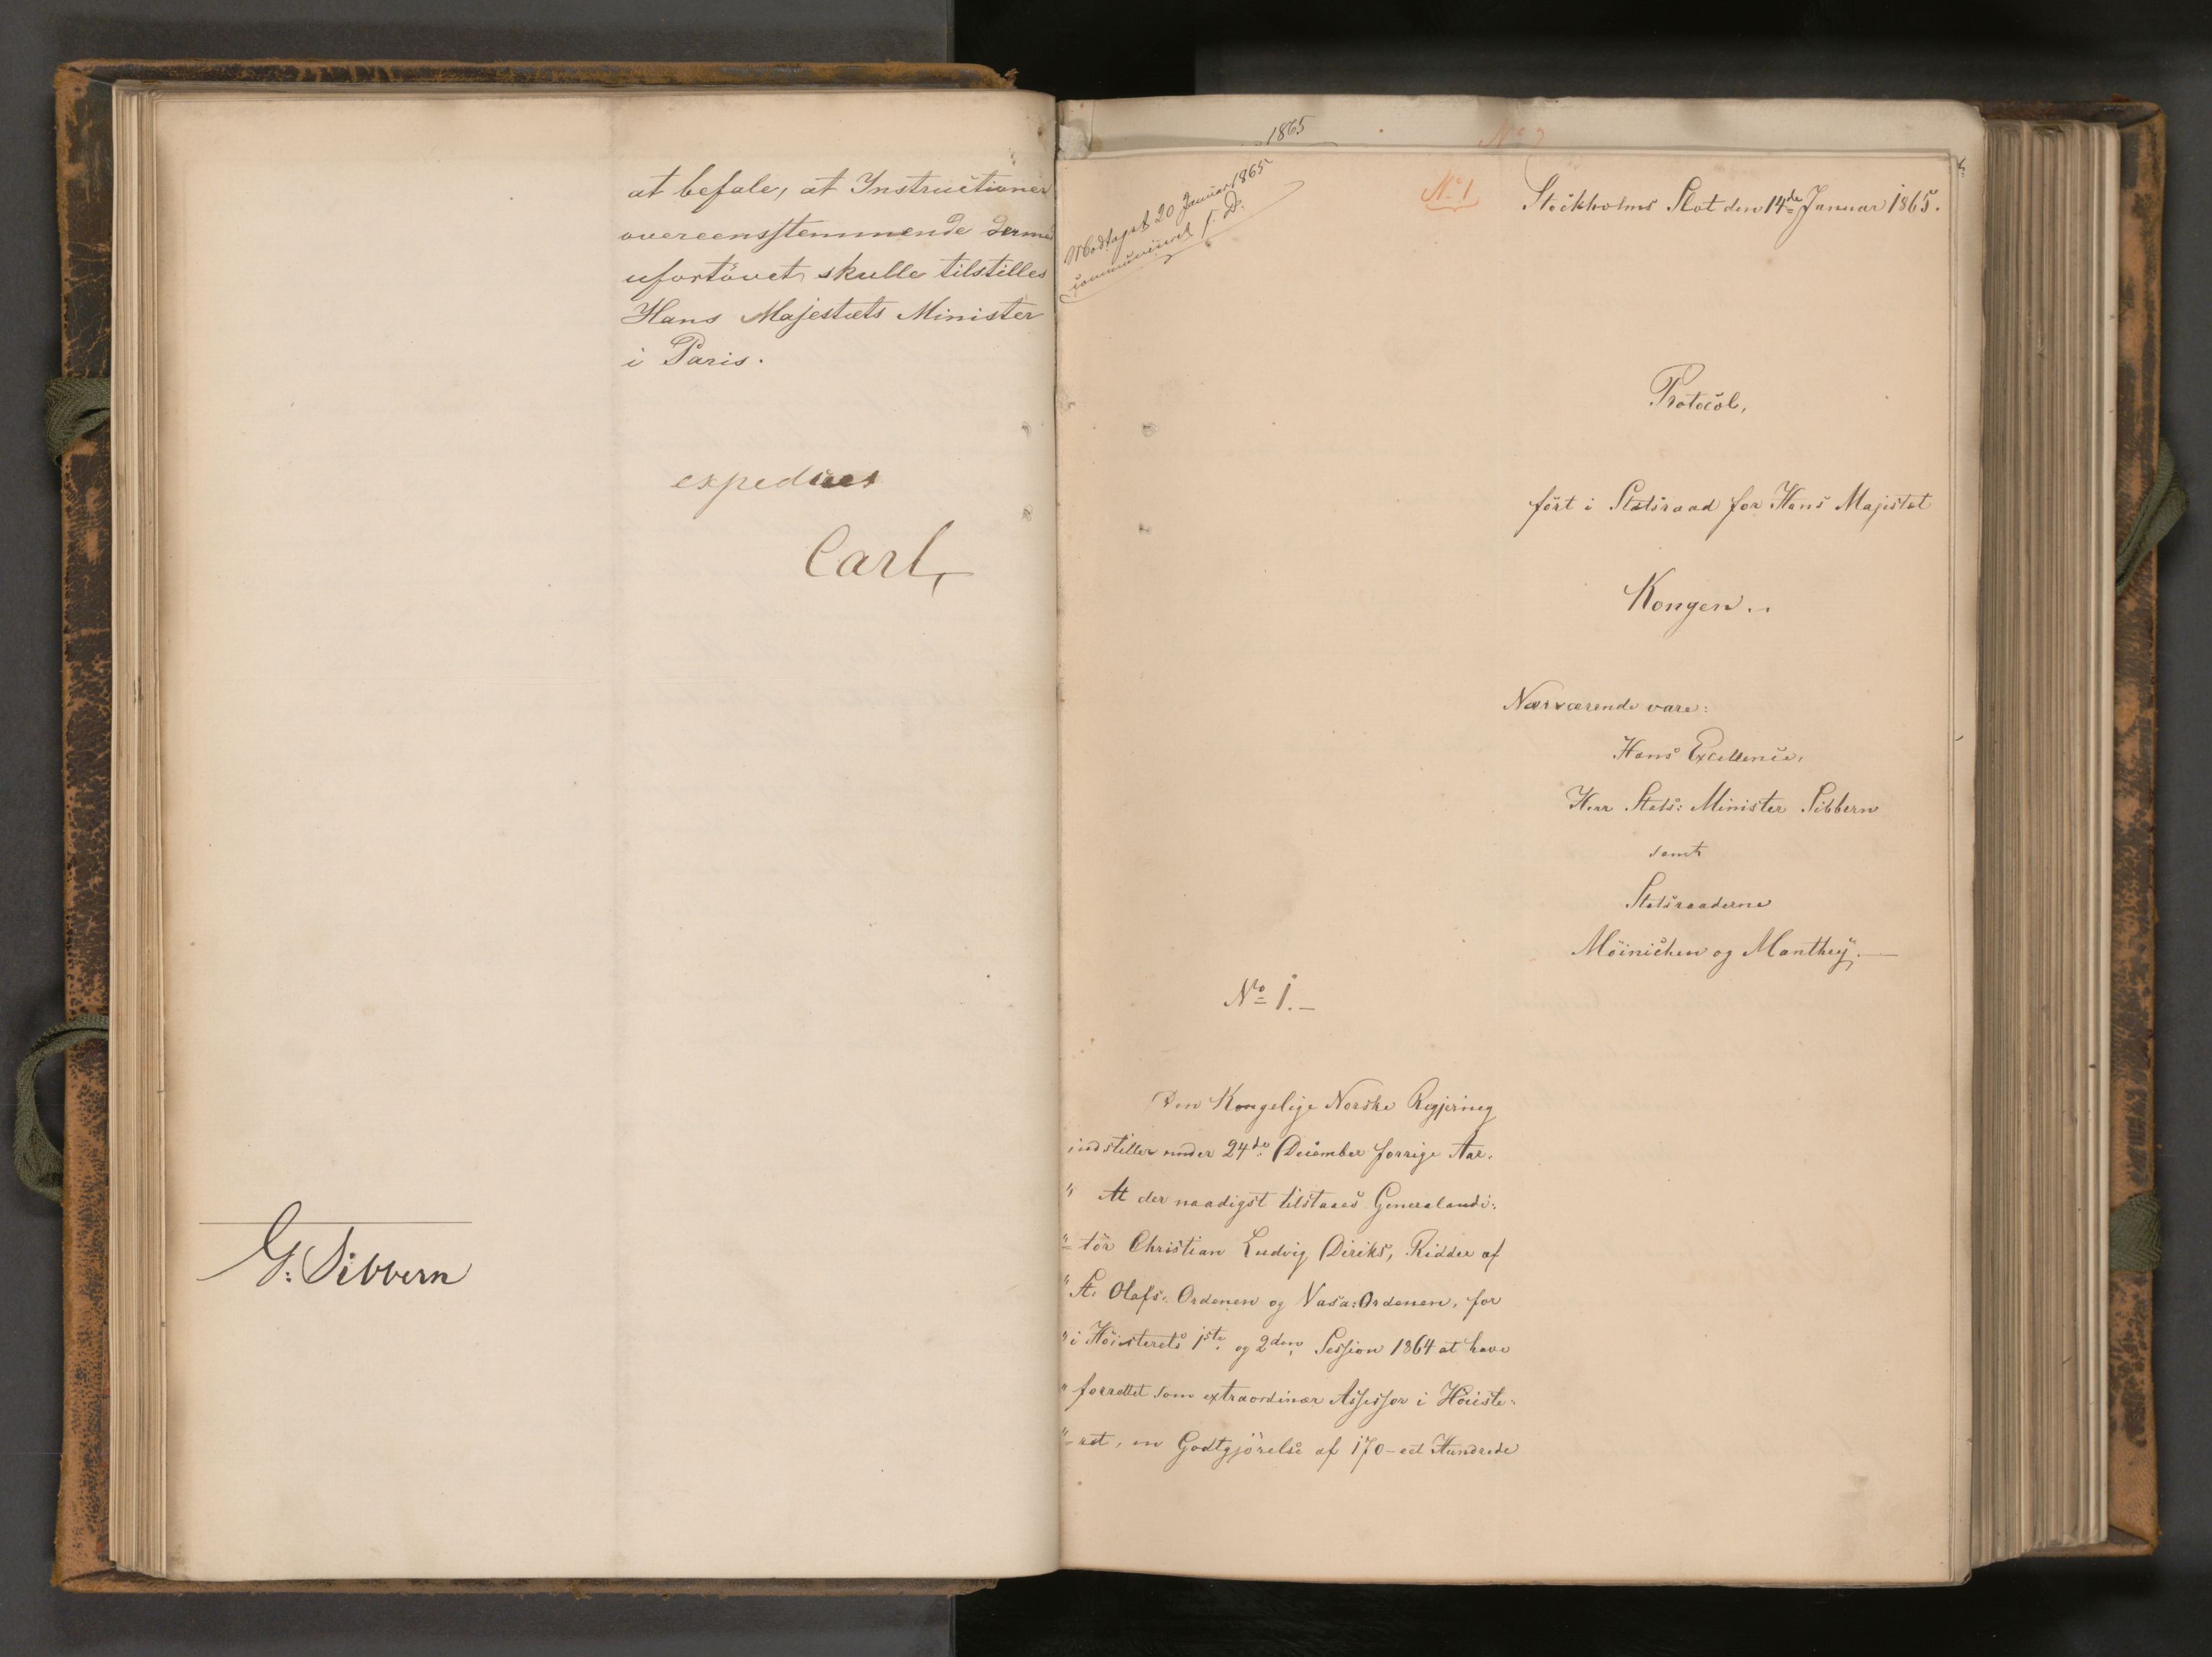 at befale, at Instructioner
overeensstemmende dermed
ufortövet skulle tilstilles
Hans Majestæts Minister
i Paris.
expederes
Carl
G: Sibbern
1865
No 2
Modtaget 20 Januar 1865
communiceret f. D.
No 1
Stockholms Slot den 14de Januar 1865.
Protocol,
fört i Statsraad for Hans Majestæt
Kongen..
Nærværende vare:
Hans Excellence,
Herr Stats: Minister Sibbern
samt
Statsraaderne
Möinichen og Manthey.—
No 1.—
Den Kongelige Norske Regjering
indstiller under 24de December forrige Aar.
" At der naadigst tilstaaes Generalaudi:
"= tör Christian Ludvig Diriks, Ridder af
" St. Olafs: Ordenen og Vasa: Ordenen, for
" i Höiesterets 1ste og 2den Session 1864 at have
" forrettet som extraordinær Assessor i Höieste:
"= ret, en Godtgjörelse af 170 - eet Hundrede